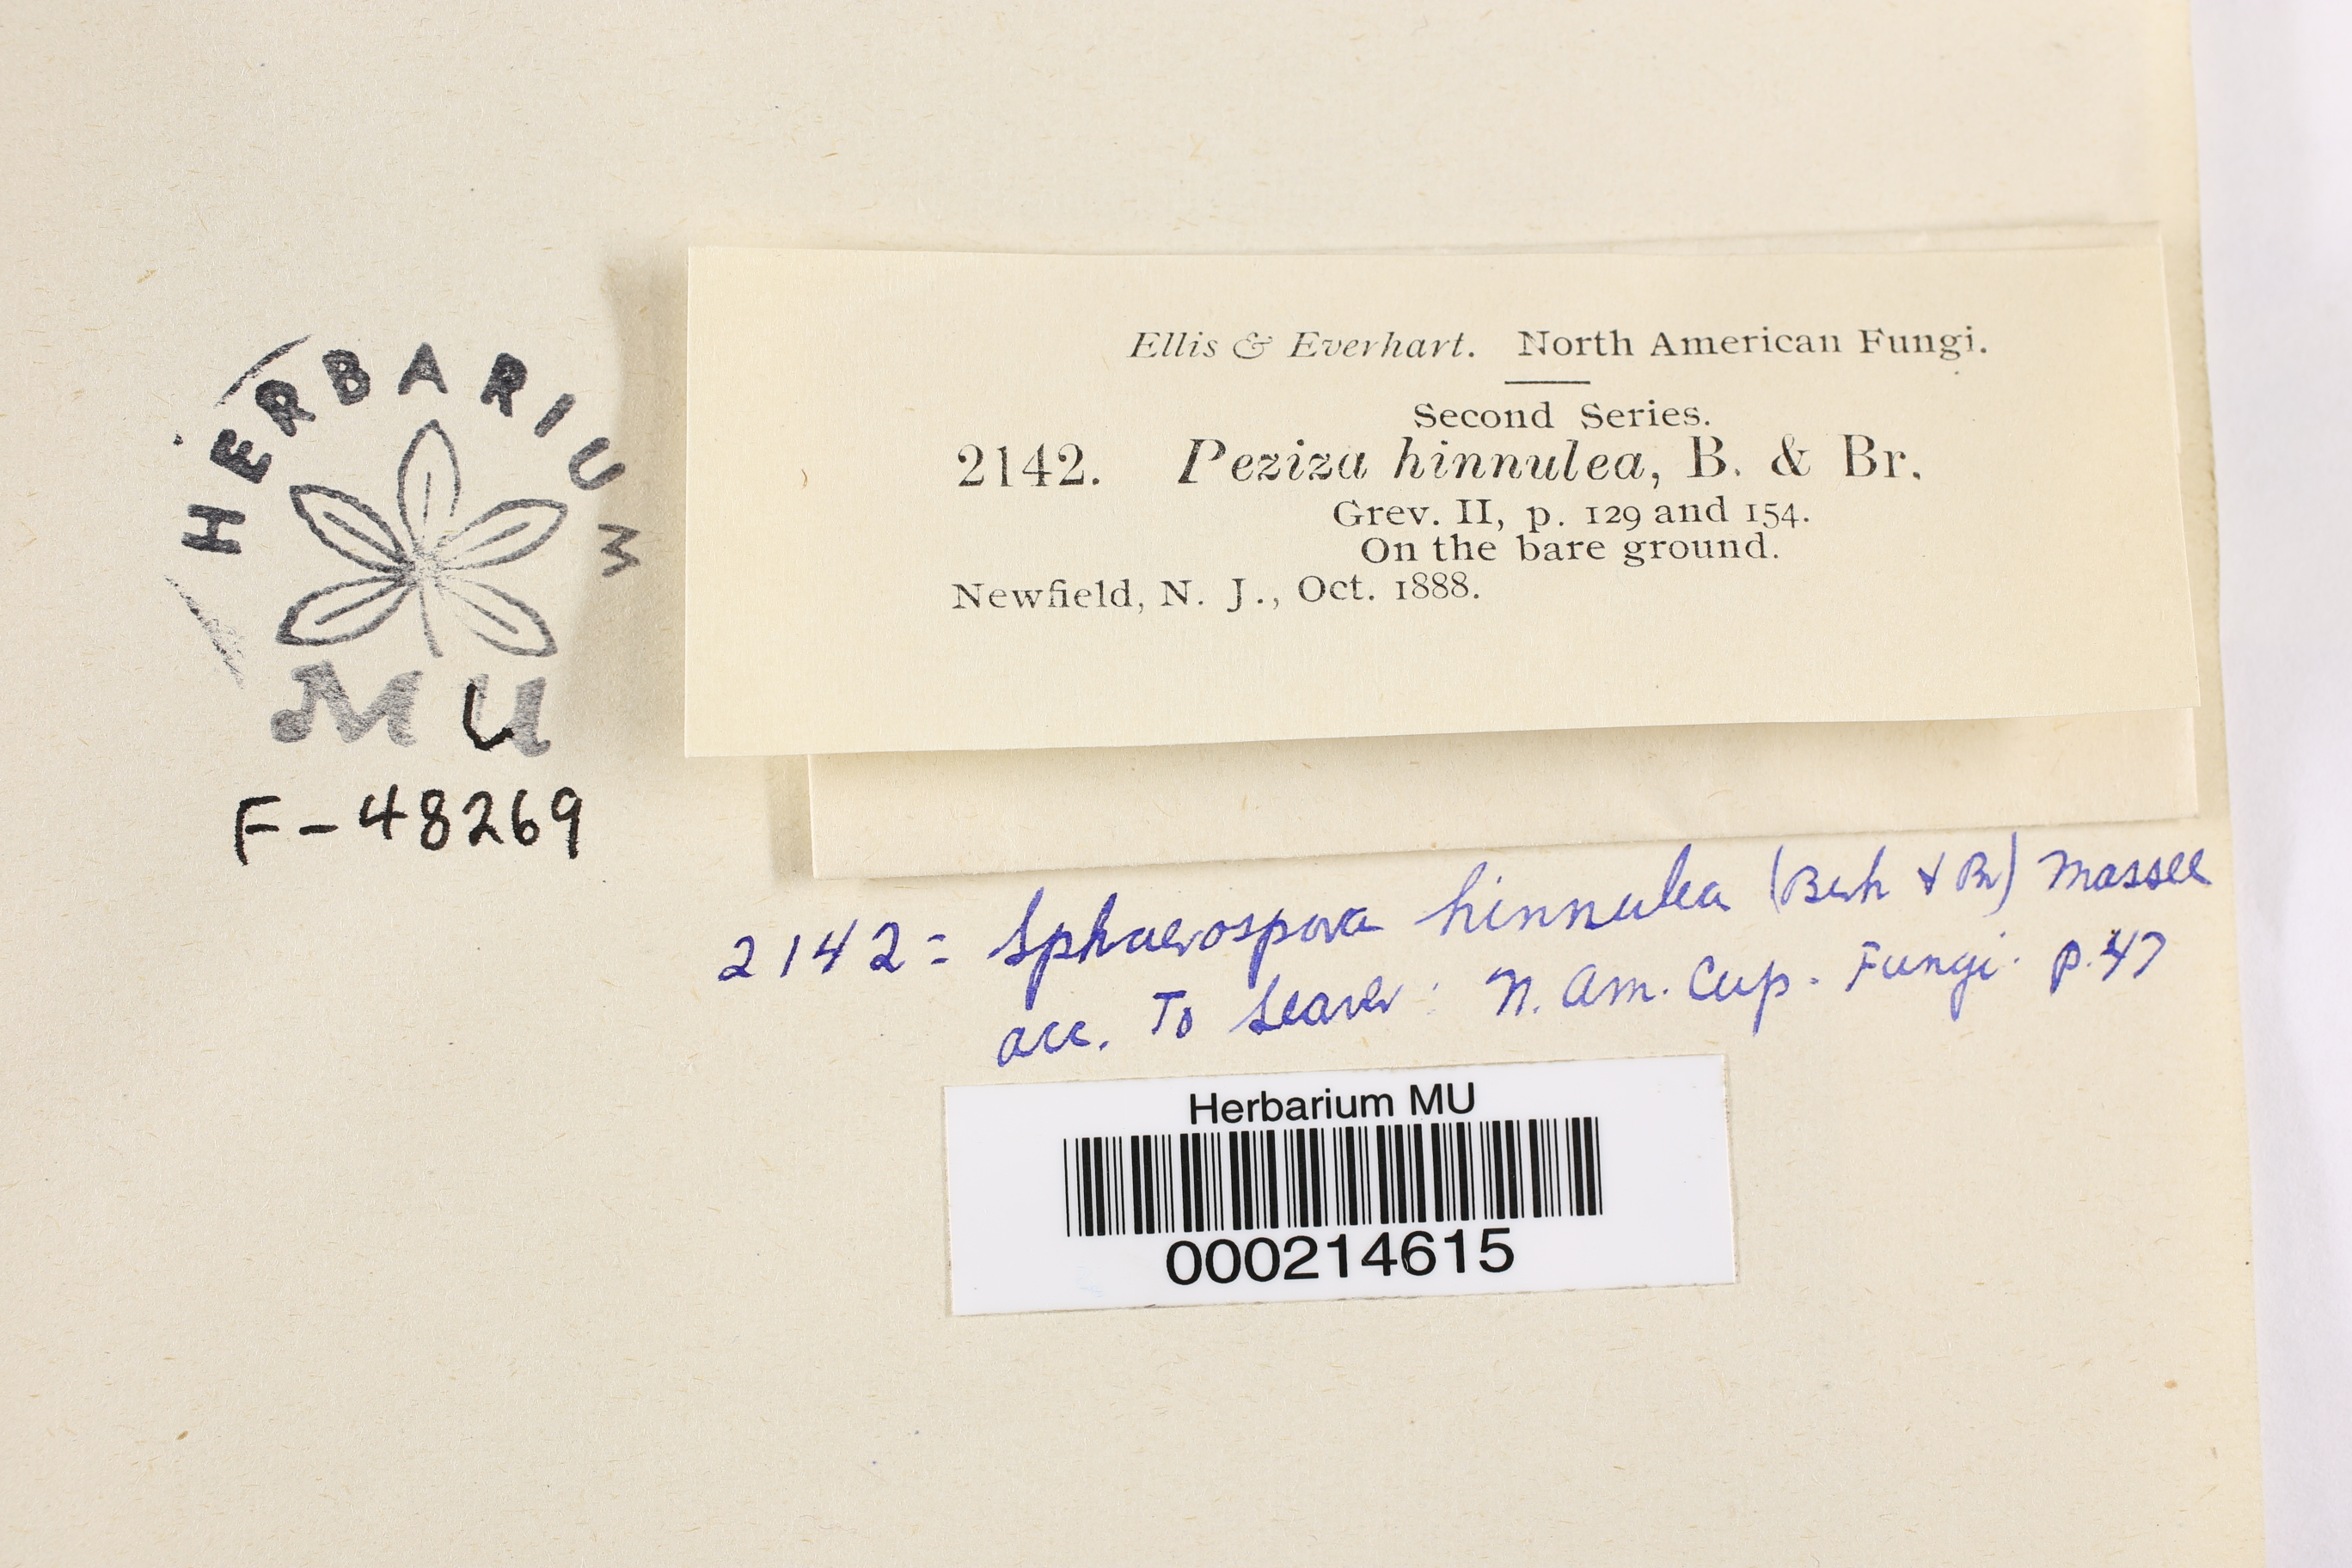 HERBARIUM
MU
F-48269
Ellis & Everhart. North American Fungi.
Second Series.
2142. Peziza hinnulea, B. & Br.
Grev. II, p. 129 and 154.
On the bare ground.
Newfield, N. J., Oct. 1888.
2142 = Sphaerospora hinnulea (Berk & Br) Massee
acc. To Seaver: N. Am. Cup. Fungi. p. 47
Herbarium MU
000214615